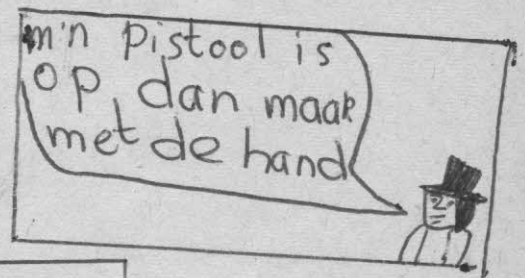 m'n pistool is
op, dan maak
met de hand